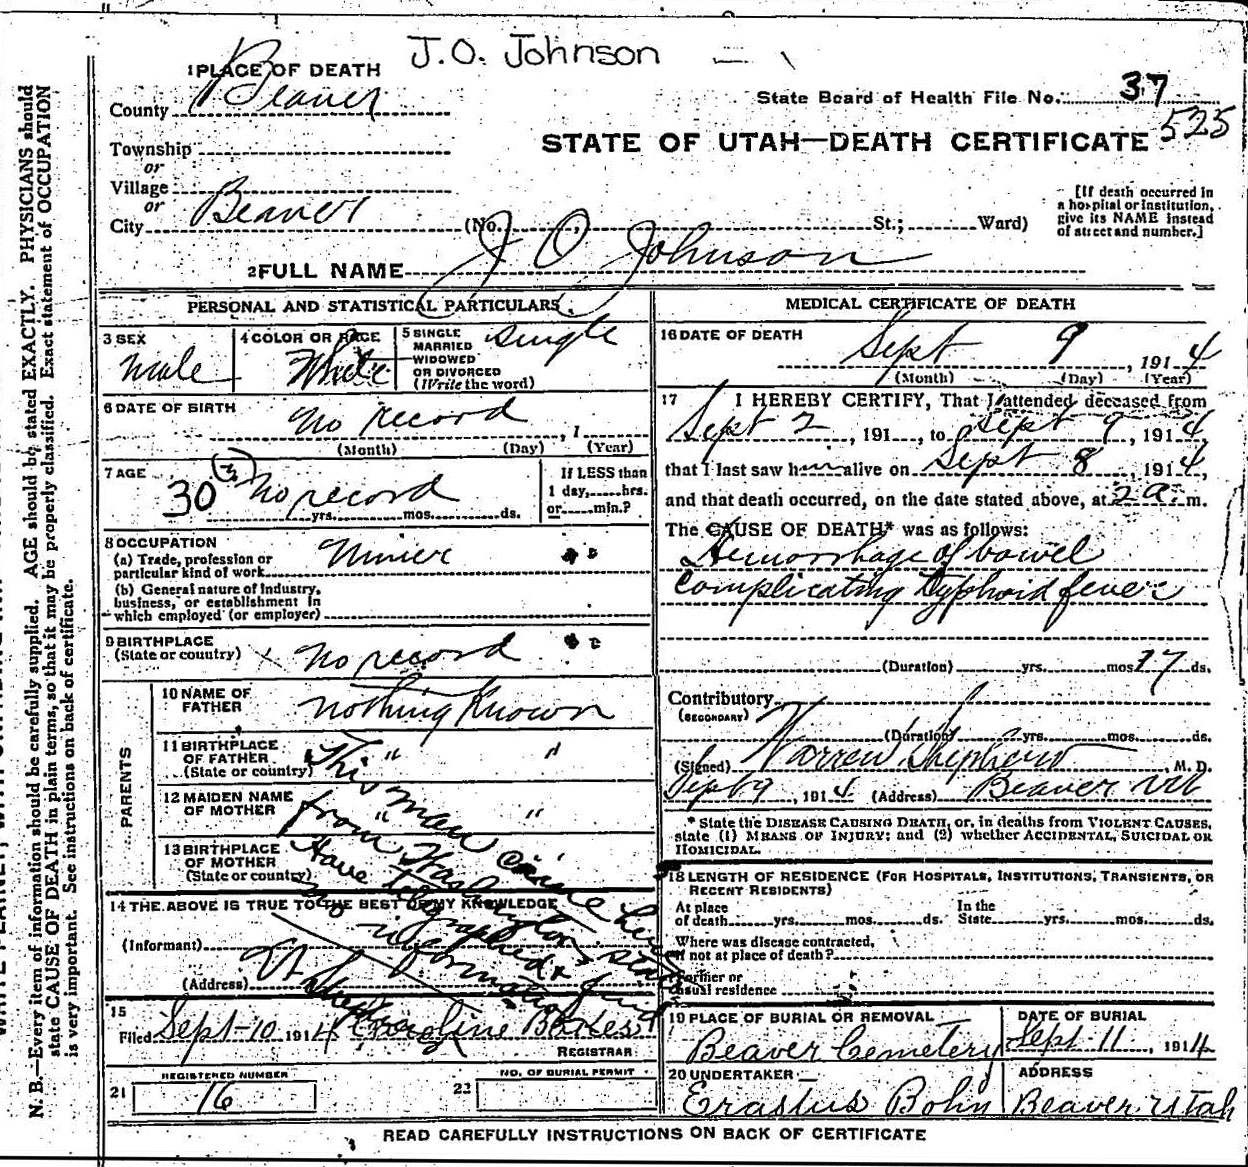 J.O. Johnson
1 PLACE OF DEATH
County Beaver
State Board of Health File No. 37
525
STATE OF UTAH—DEATH CERTIFICATE
Township
or
Village
or
City Beaver (No. St.; Ward)
[If death occurred in
a hospital or institution,
give its NAME instead
of street and number.]
2 FULL NAME J O Johnson
PERSONAL AND STATISTICAL PARTICULARS.
3 SEX
male
4 COLOR OR RACE
White
5 SINGLE
MARRIED
WIDOWED
OR DIVORCED
(Write the word)
single
6 DATE OF BIRTH
no record , 1
(Month) (Day) (Year)
7 AGE
30 no record
yrs. mos. ds.
If LESS than
1 day, hrs.
or min.?
8 OCCUPATION
(a) Trade, profession or
particular kind of work Miner
(b) General nature of Industry,
business, or establishment in
which employed (or employer)
9 BIRTHPLACE
(State or country) no record
PARENTS
10 NAME OF
FATHER nothing Known
11 BIRTHPLACE
OF FATHER
(State or country) " "
12 MAIDEN NAME
OF MOTHER " "
13 BIRTHPLACE
OF MOTHER
(State or country)
This man came here
from Washington state
Have telegraphed & find
no information
14 THE ABOVE IS TRUE TO THE BEST OF MY KNOWLEDGE
(Informant)
(Address)
15
Filed Sept-10 1914 Caroline
REGISTRAR
21 REGISTERED NUMBER
16
22 NO. OF BURIAL PERMIT
MEDICAL CERTIFICATE OF DEATH
16 DATE OF DEATH
Sept 9 , 1914
(Month) (Day) (Year)
17 I HEREBY CERTIFY, That I attended deceased from
Sept 2 , 191 , to Sept 9 , 1914,
that I last saw him alive on Sept 8 , 1914,
and that death occurred, on the date stated above, at 2 a. m.
The CAUSE OF DEATH* was as follows:
Hemorrhage of bowel
complicating typhoid fever
(Duration) yrs. mos. 17 ds.
Contributory
(SECONDARY)
(Duration) yrs. mos. ds.
(Signed) Warren Shepherd , M. D.
Sept 9 , 1914 (Address) Beaver Ut
* State the DISEASE CAUSING DEATH, or, in deaths from VIOLENT CAUSES,
state (1) MEANS OF INJURY; and (2) whether ACCIDENTAL, SUICIDAL OR
HOMICIDAL.
18 LENGTH OF RESIDENCE (FOR HOSPITALS, INSTITUTIONS, TRANSIENTS, OR
RECENT RESIDENTS)
At place
of death yrs. mos. ds.
In the
State yrs. mos. ds.
Where was disease contracted,
if not at place of death?
Former or
usual residence
19 PLACE OF BURIAL OR REMOVAL
Beaver Cemetery
DATE OF BURIAL
Sept-11 , 1914
20 UNDERTAKER
Erastus Bohn
ADDRESS
Beaver Utah
READ CAREFULLY INSTRUCTIONS ON BACK OF CERTIFICATE
N. B.—Every item of information should be carefully supplied. AGE should be stated EXACTLY. PHYSICIANS should
state CAUSE OF DEATH in plain terms, so that it may be properly classified. Exact statement of OCCUPATION
is very important. See instructions on back of certificate.